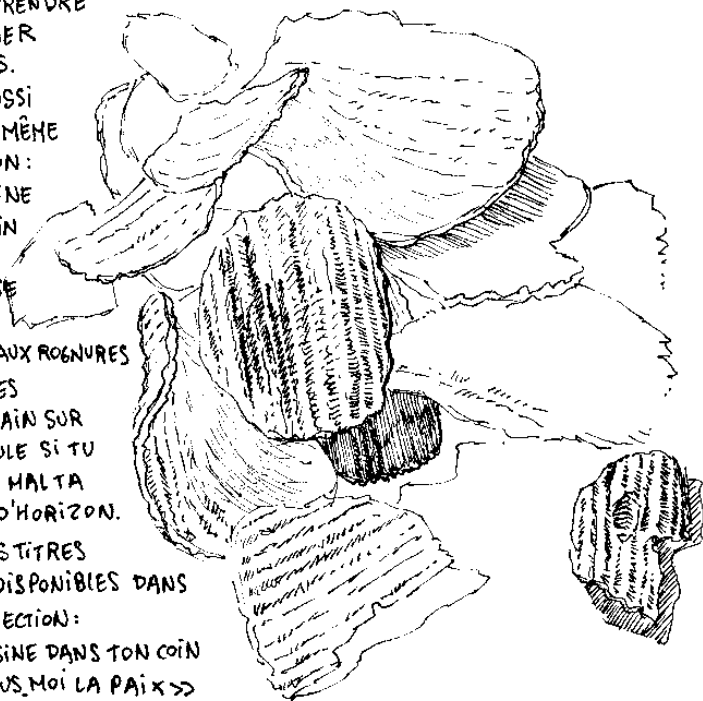 RENDRE
ER
S.
SSI
MÊME
ON:
INE
IN
SE
AUX ROGNURES
ES
AIN SUR
ULE SI TU
MALTA
D'HORIZON.
S TITRES
DISPONIBLES DANS
ECTION:
SINE DANS TON COIN
US_MOI LA PAIX >>